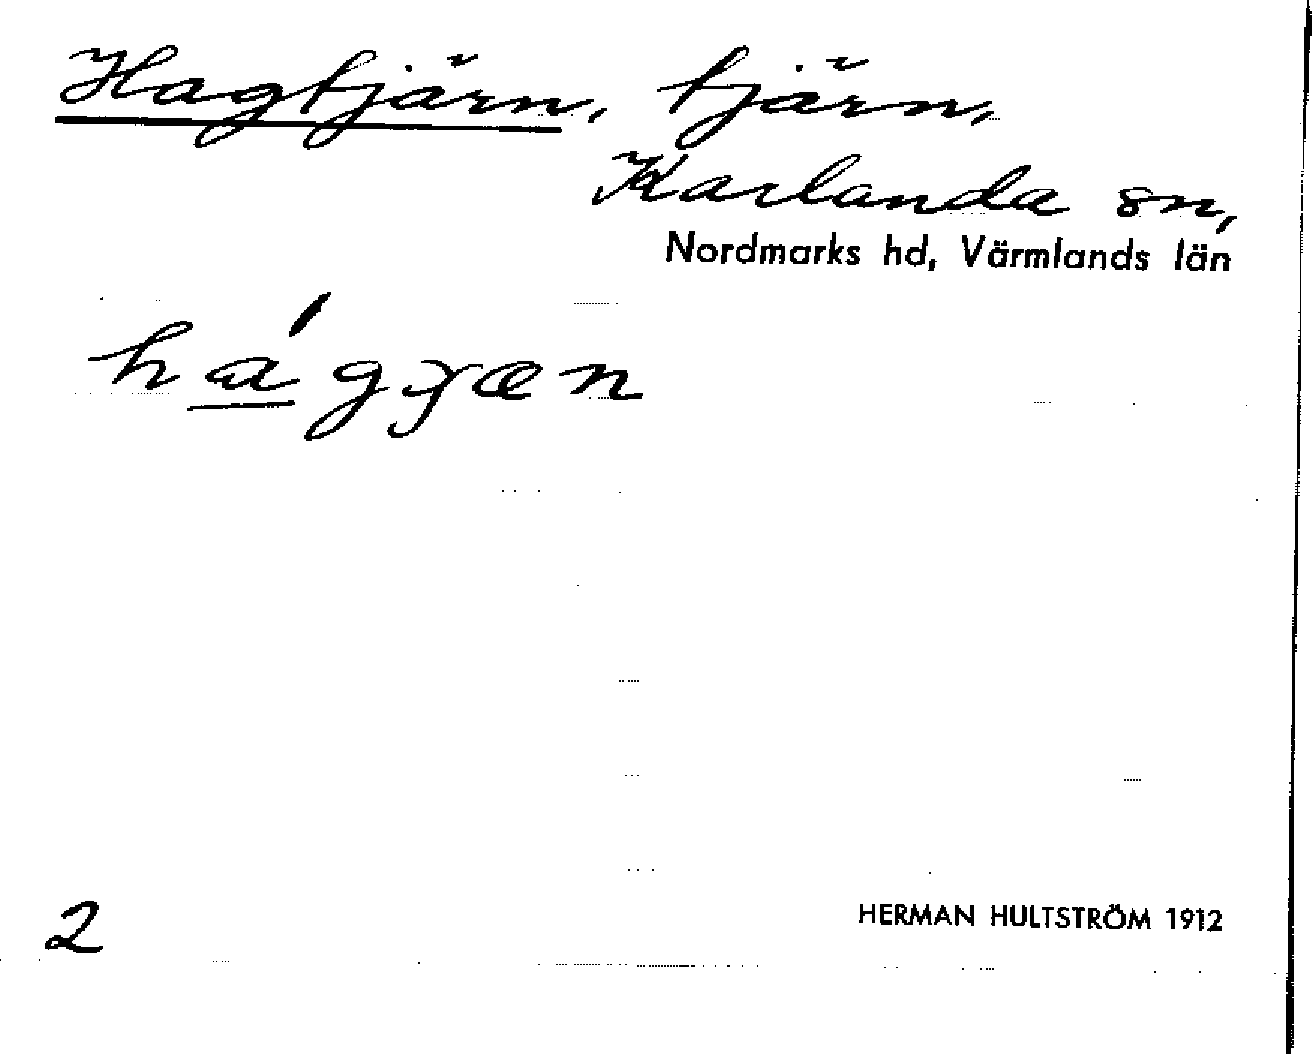 Hagtjärn, tjärn,
Karlanda sn,
Nordmarks hd, Värmlands län
hágɣæn
2
HERMAN HULTSTRÖM 1912